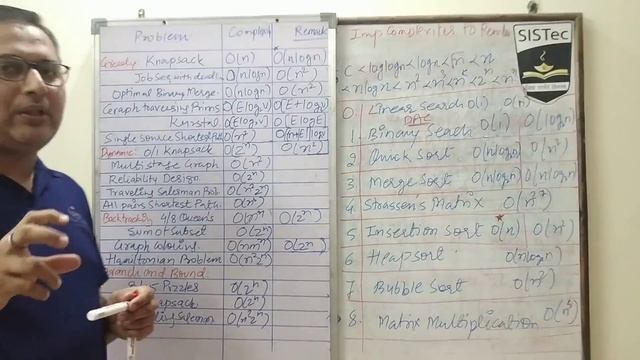 Problem Complexity Remark
Greedy Knapsack O(n) O(nlogn)
Job seq with deadl. O(nlogn) O(n²)
Optimal Binary Merge O(nlogn) O(n²)
Graph traversing Prims O(Elogv) O(E+logv)
Kruskal O(Elogv) O(ElogE)
Single Source Shortest Path O(n²)
Dynamic: 0/1 Knapsack O(2ⁿ) O(n²)
Multistage Graph O(n²)
Reliability Design O(2ⁿ)
Travelling Salesman Prob O(n²2ⁿ)
All pairs Shortest Path
Backtracking 4/8 Queens O(2ⁿ)
Sum of Subset O(2ⁿ)
Graph Colouring O(nmⁿ) O(2ⁿ
Hamiltonian Problem O(n²2ⁿ)
Branch and Bound
Puzzles O(2ⁿ)
apsack O(2ⁿ)
Salesman O(n²2ⁿ)
Imp Complexites to
SISTec
C < loglogn < logn < √n < n
0. Linear Search O(1) O(n)
DAC
1. Binary Search O(1) O(logn)
2 Quick Sort O(nlogn) O(n²)
3. Merge Sort O(nlogn) O(nlogn)
4 Strassen's Matrix
5 Insertion Sort O(n) O(n²)
6 Heapsort O(nlogn)
7. Bubble Sort O(n²)
8. Matrix Multiplication O(n³)